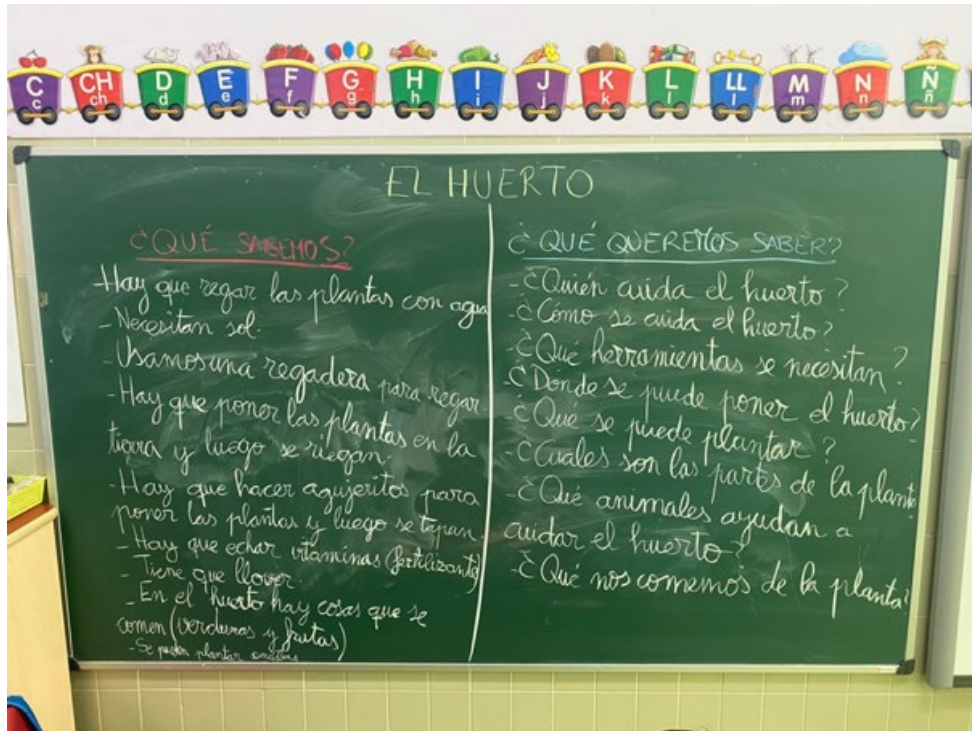 C CH D E F G H I J K L LL M N Ñ
c ch d e f g h i j k l l m n ñ
EL HUERTO
¿QUÉ SABEMOS?
-Hay que regar las plantas con agua
-Necesitan sol.
-Usamos una regadera para regar
-Hay que poner las plantas en la
tierra y luego se riegan.
-Hay que hacer agujeritos para
poner las plantas y luego se tapan.
-Hay que echar vitaminas (fertilizante)
-Tiene que llover.
-En el huerto hay cosas que se
comen (verduras y frutas)
-Se pueden plantar
¿QUÉ QUEREMOS SABER?
-¿Quién cuida el huerto?
-¿Cómo se cuida el huerto?
-¿Qué herramientas se necesitan?
-¿Donde se puede poner el huerto?
-¿Qué se puede plantar?
-¿Cuales son las partes de la planta
-¿Qué animales ayudan a
cuidar el huerto?
-¿Qué nos comemos de la planta?